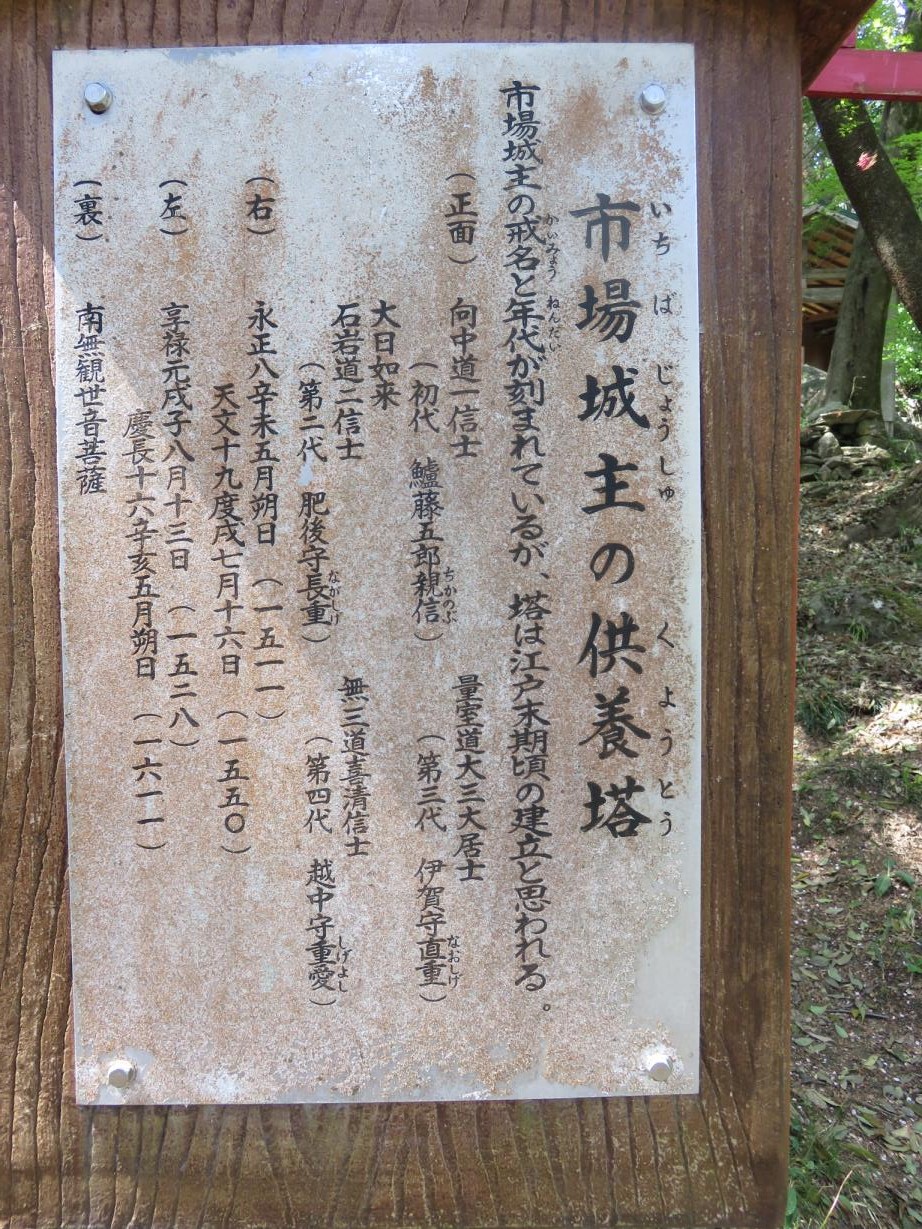 市場城主の供養塔
いちばじょうしゅくようとう
市場城主の戒名と年代が刻まれているが、塔は江戸末期頃の建立と思われる。
かいみょう ねんだい
(正面) 向中道一信士 量室道大三大居士
(初代 鱸藤五郎親信) (第三代 伊賀守直重)
ちかのぶ なおしげ
大日如来
石岩道二信士 無三道喜清信士
(第二代 肥後守長重) (第四代 越中守重愛)
ながしげ しげよし
(右) 永正八辛未五月朔日 (一五一一)
天文十九度戌七月十六日 (一五五〇)
(左) 享禄元戌子八月十三日 (一五二八)
慶長十六辛亥五月朔日 (一六一一)
(裏) 南無観世音菩薩